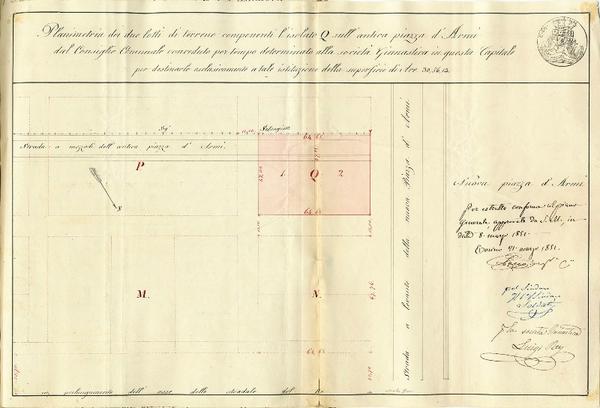 Planimetria dei due lotti di terreno componenti l'isolato Q sull'antica piazza d'Armi
dal Consiglio Comunale conceduto per tempo determinato alla società Ginnastica in questa Capitale
per destinarlo esclusivamente a tale istituzione della superficie di Are 30,56,12.
64 65
Strada a mezzodì dell'antica piazza d'Armi
P
1 Q 2
64 65
M
N
67,76
64 65
in prolungamento dell'asse dello stradale del
Strada a levante della nuova Piazza d'Armi
Nuova piazza d'Armi
Per estratto conforme al piano
generale, approvato da S. M., in
data 8 marzo 1851.
Torino 21 marzo 1851.
pel Sindaco
Per la società Ginnastica
Luigi